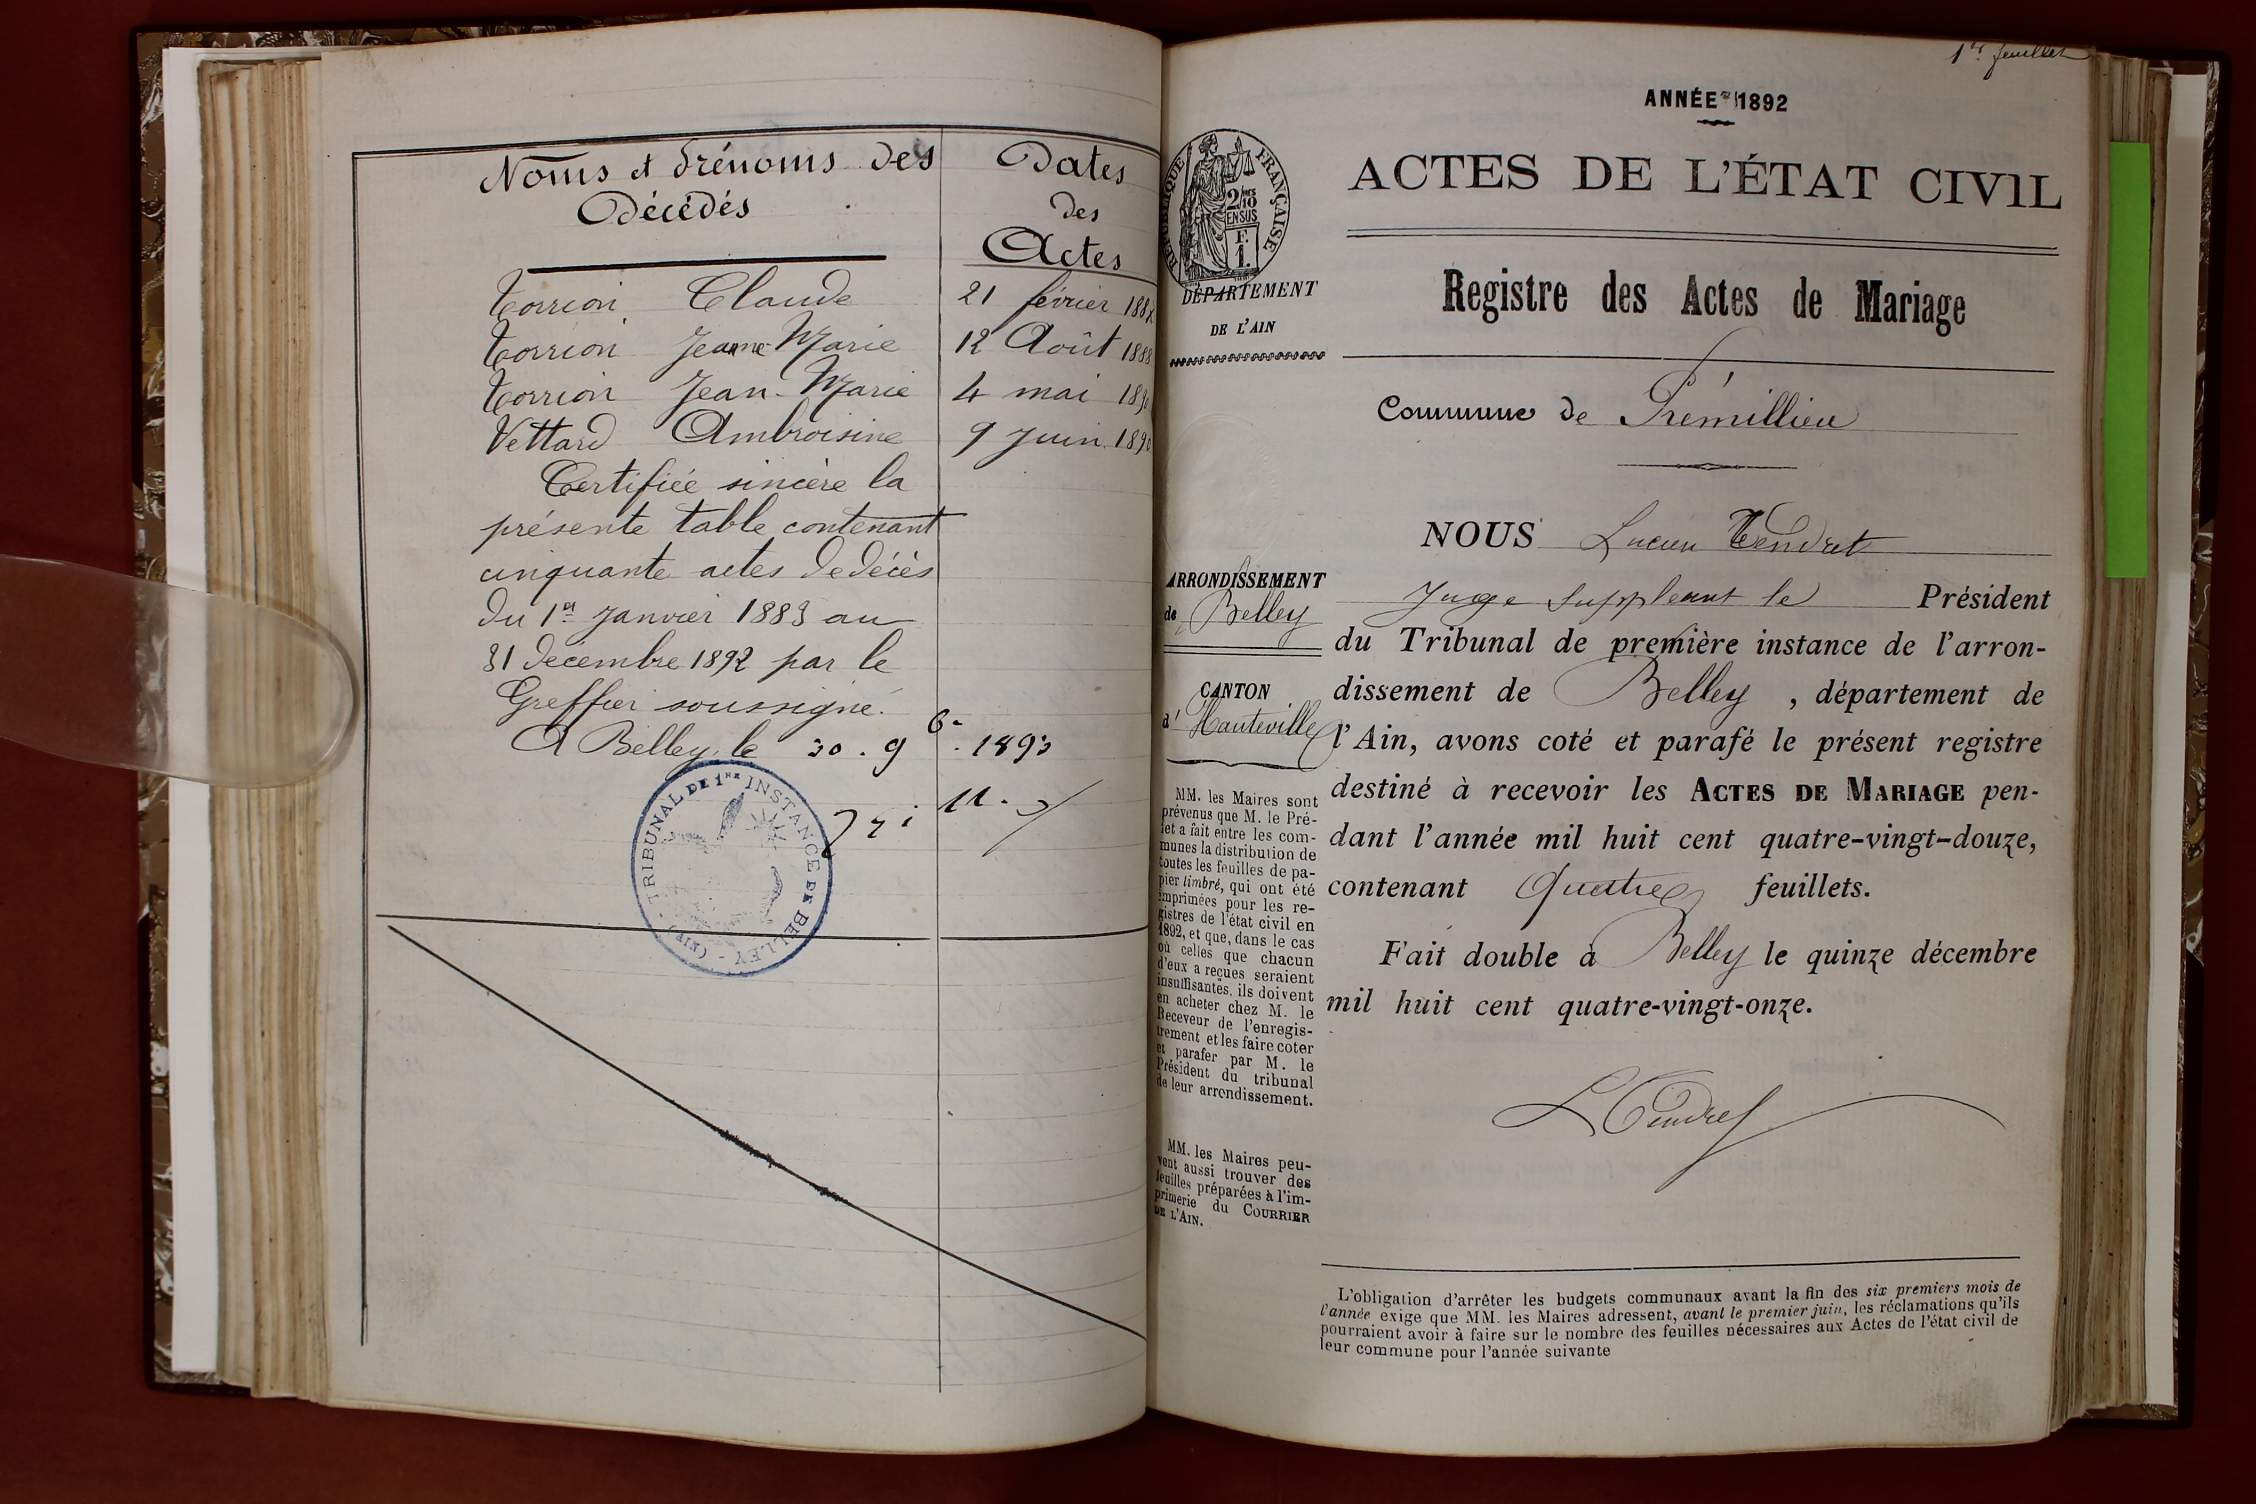 Noms et Prénoms des
Décédés
Dates
des
Actes
Torrion Claude 21 février 188
Torrion Jeanne-Marie 12 Août 1888
Torrion Jean-Marie 4 mai 189
Vettard Ambroisine 9 Juin 1890
Certifiée sincère la
présente table contenant
cinquante actes de décès
du 1er Janvier 1883 au
31 décembre 1892 par le
Greffier soussigné.
A Belley, le 30. 9bre. 1893
TRIBUNAL DE 1RE INSTANCE DE BELLEY - (AIN) -
1er feuillet
ANNÉE 1892
ACTES DE L'ÉTAT CIVIL
RÉPUBLIQUE FRANÇAISE
2/10
EN SUS
F.
1.
DÉPARTEMENT
DE L'AIN
Registre des Actes de Mariage
Commune de Prémillieu
NOUS Lucien Tendret
Juge suppléant le Président
du Tribunal de première instance de l'arron-
dissement de Belley, département de
l'Ain, avons coté et parafé le présent registre
destiné à recevoir les ACTES DE MARIAGE pen-
dant l'année mil huit cent quatre-vingt-douze,
contenant Quatre feuillets.
Fait double à Belley le quinze décembre
mil huit cent quatre-vingt-onze.
L Tendret
ARRONDISSEMENT
de Belley
CANTON
d'Hauteville
MM. les Maires sont
prévenus que M. le Pré-
fet a fait entre les com-
munes la distribution de
toutes les feuilles de pa-
pier timbré, qui ont été
imprimées pour les re-
gistres de l'état civil en
1892, et que, dans le cas
où celles que chacun
d'eux a reçues seraient
insuffisantes, ils doivent
en acheter chez M. le
Receveur de l'enregis-
trement et les faire coter
et parafer par M. le
Président du tribunal
de leur arrondissement.
MM. les Maires peu-
vent aussi trouver des
feuilles préparées à l'im-
primerie du COURRIER
DE L'AIN.
L'obligation d'arrêter les budgets communaux avant la fin des six premiers mois de
l'année exige que MM. les Maires adressent, avant le premier juin, les réclamations qu'ils
pourraient avoir à faire sur le nombre des feuilles nécessaires aux Actes de l'état civil de
leur commune pour l'année suivante